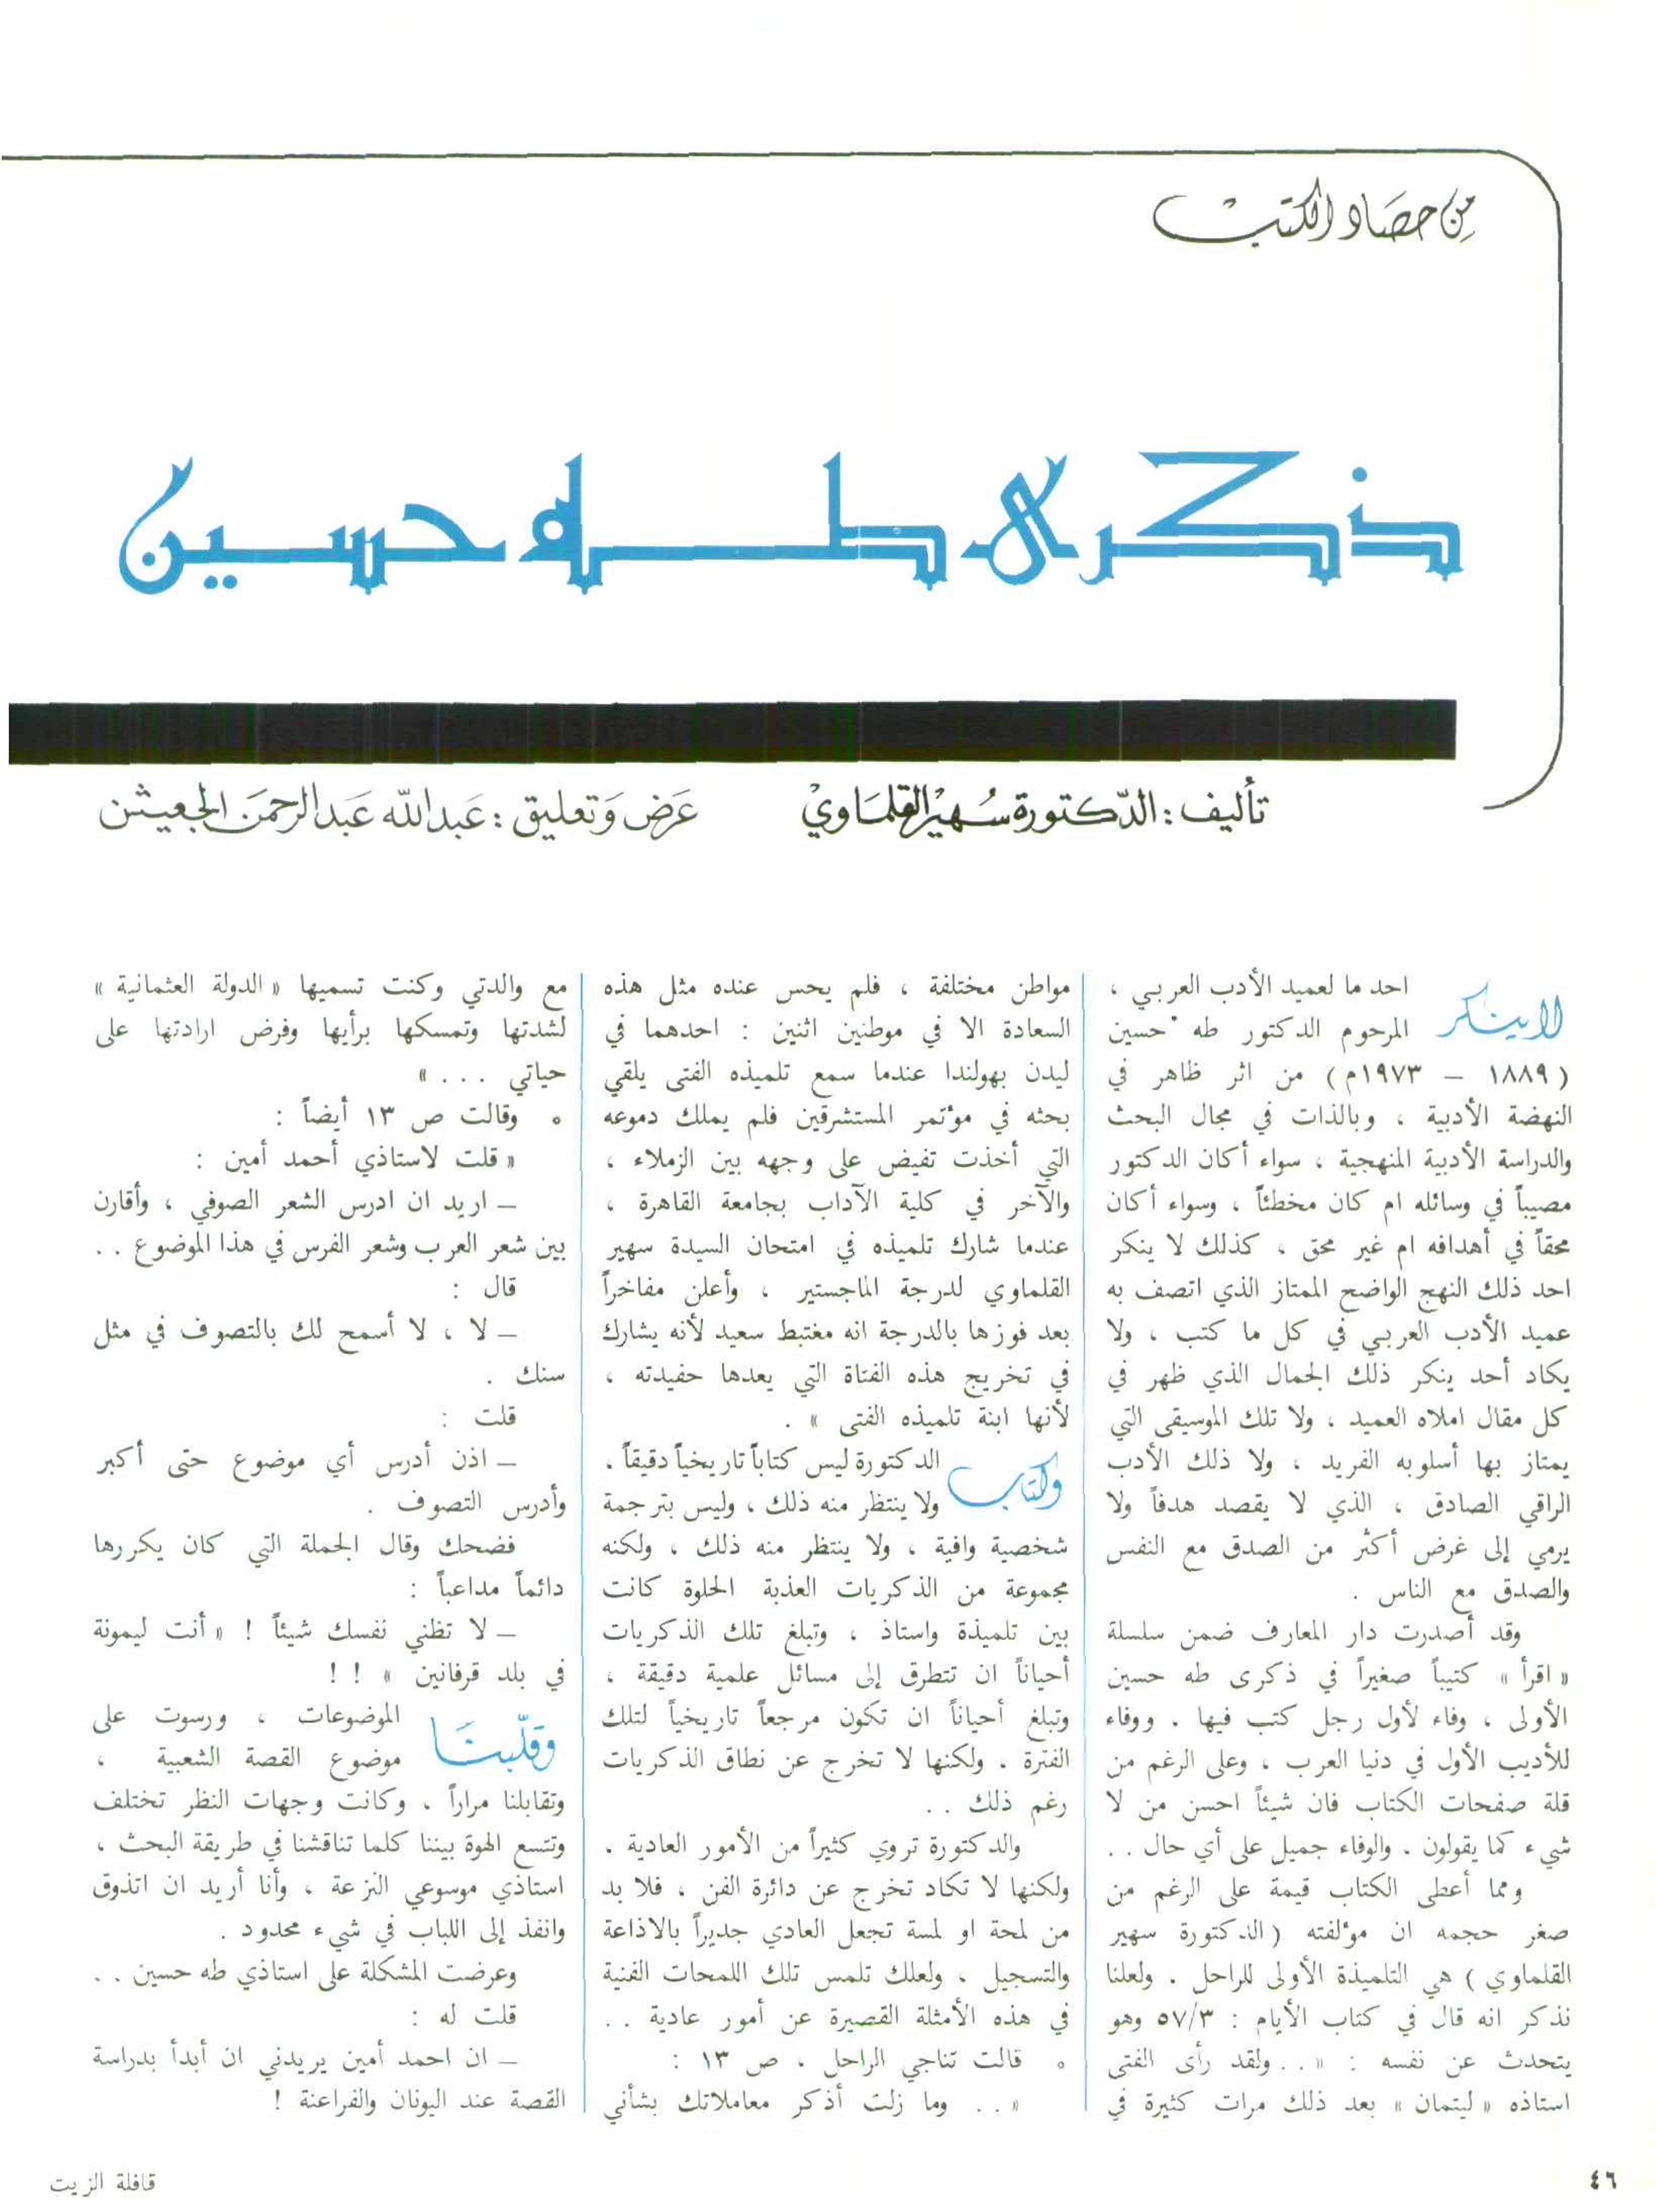 من حصاد الكتب
ذكرى طه حسين
تأليف : الدّكتورة سُهير القلمَاويْ
عَرض وَتعليق : عَبد الله عَبد الرحمَن الجعيثن
لا ينكر احد ما لعميد الأدب العربي ،
المرحوم الدكتور طه حسين
( ١٨٨٩ – ١٩٧٣م ) من اثر ظاهر في
النهضة الأدبية ، وبالذات في مجال البحث
والدراسة الأدبية المنهجية ، سواء أكان الدكتور
مصيباً في وسائله ام كان مخطئاً ، وسواء أكان
محقاً في أهدافه ام غير محق ، كذلك لا ينكر
احد ذلك النهج الواضح الممتاز الذي اتصف به
عميد الأدب العربي في كل ما كتب ، ولا
يكاد أحد ينكر ذلك الجمال الذي ظهر في
كل مقال املاه العميد ، ولا تلك الموسيقى التي
يمتاز بها أسلوبه الفريد ، ولا ذلك الأدب
الراقي الصادق ، الذي لا يقصد هدفاً ولا
يرمي إلى غرض أكثر من الصدق مع النفس
والصدق مع الناس .
وقد أصدرت دار المعارف ضمن سلسلة
« اقرأ » كتيباً صغيراً في ذكرى طه حسين
الأولى ، وفاء لأول رجل كتب فيها . ووفاء
للأديب الأول في دنيا العرب ، وعلى الرغم من
قلة صفحات الكتاب فان شيئاً احسن من لا
شيء كما يقولون . والوفاء جميل على أي حال . .
ومما أعطى الكتاب قيمة على الرغم من
صغر حجمه ان مؤلفته ( الدكتورة سهير
القلماوي ) هي التلميذة الأولى للراحل . ولعلنا
نذكر انه قال في كتاب الأيام : ٥٧/٣ وهو
يتحدث عن نفسه : « . . ولقد رأى الفتى
استاذه « ليتمان » بعد ذلك مرات كثيرة في
مواطن مختلفة ، فلم يحس عنده مثل هذه
السعادة الا في موطنين اثنين : احدهما في
ليدن بهولندا عندما سمع تلميذه الفتى يلقي
بحثه في مؤتمر المستشرقين فلم يملك دموعه
التي أخذت تفيض على وجهه بين الزملاء ،
والآخر في كلية الآداب بجامعة القاهرة ،
عندما شارك تلميذه في امتحان السيدة سهير
القلماوي لدرجة الماجستير ، وأعلن مفاخراً
بعد فوزها بالدرجة انه مغتبط سعيد لأنه يشارك
في تخريج هذه الفتاة التي يعدها حفيدته ،
لأنها ابنة تلميذه الفتى » .
وكتاب الدكتورة ليس كتاباً تاريخياً دقيقاً .
ولا ينتظر منه ذلك ، وليس بترجمة
شخصية وافية ، ولا ينتظر منه ذلك ، ولكنه
مجموعة من الذكريات العذبة الحلوة كانت
بين تلميذة واستاذ ، وتبلغ تلك الذكريات
أحياناً ان تتطرق إلى مسائل علمية دقيقة ،
وتبلغ أحياناً ان تكون مرجعاً تاريخياً لتلك
الفترة . ولكنها لا تخرج عن نطاق الذكريات
رغم ذلك . .
والدكتورة تروي كثيراً من الأمور العادية .
ولكنها لا تكاد تخرج عن دائرة الفن ، فلا بد
من لمحة او لمسة تجعل العادي جديراً بالاذاعة
والتسجيل . ولعلك تلمس تلك اللمحات الفنية
في هذه الأمثلة القصيرة عن أمور عادية . .
٥ قالت تناجي الراحل ، ص ١٣ :
« . . وما زلت أذكر معاملاتك بشأني
مع والدتي وكنت تسميها « الدولة العثمانية »
لشدتها وتمسكها برأيها وفرض ارادتها على
حياتي . . . »
٥ وقالت ص ١٣ أيضاً :
« قلت لاستاذي أحمد أمين :
– اريد ان ادرس الشعر الصوفي ، وأقارن
بين شعر العرب وشعر الفرس في هذا الموضوع . .
قال :
– لا ، لا أسمح لك بالتصوف في مثل
سنك .
قلت :
– اذن أدرس أي موضوع حتى أكبر
وأدرس التصوف .
فضحك وقال الجملة التي كان يكررها
دائماً مداعباً :
– لا تظني نفسك شيئاً ! « أنت ليمونة
في بلد قرفانين » ! !
وقلّبنَا الموضوعات ، ورسوت على
موضوع القصة الشعبية ،
وتقابلنا مراراً . وكانت وجهات النظر تختلف
وتتسع الهوة بيننا كلما تناقشنا في طريقة البحث ،
استاذي موسوعي النزعة ، وأنا أريد ان اتذوق
وانفذ إلى اللباب في شيء محدود .
وعرضت المشكلة على استاذي طه حسين . .
قلت له :
– ان احمد أمين يريدني ان أبدأ بدراسة
القصة عند اليونان والفراعنة !
٤٦
قافلة الزيت